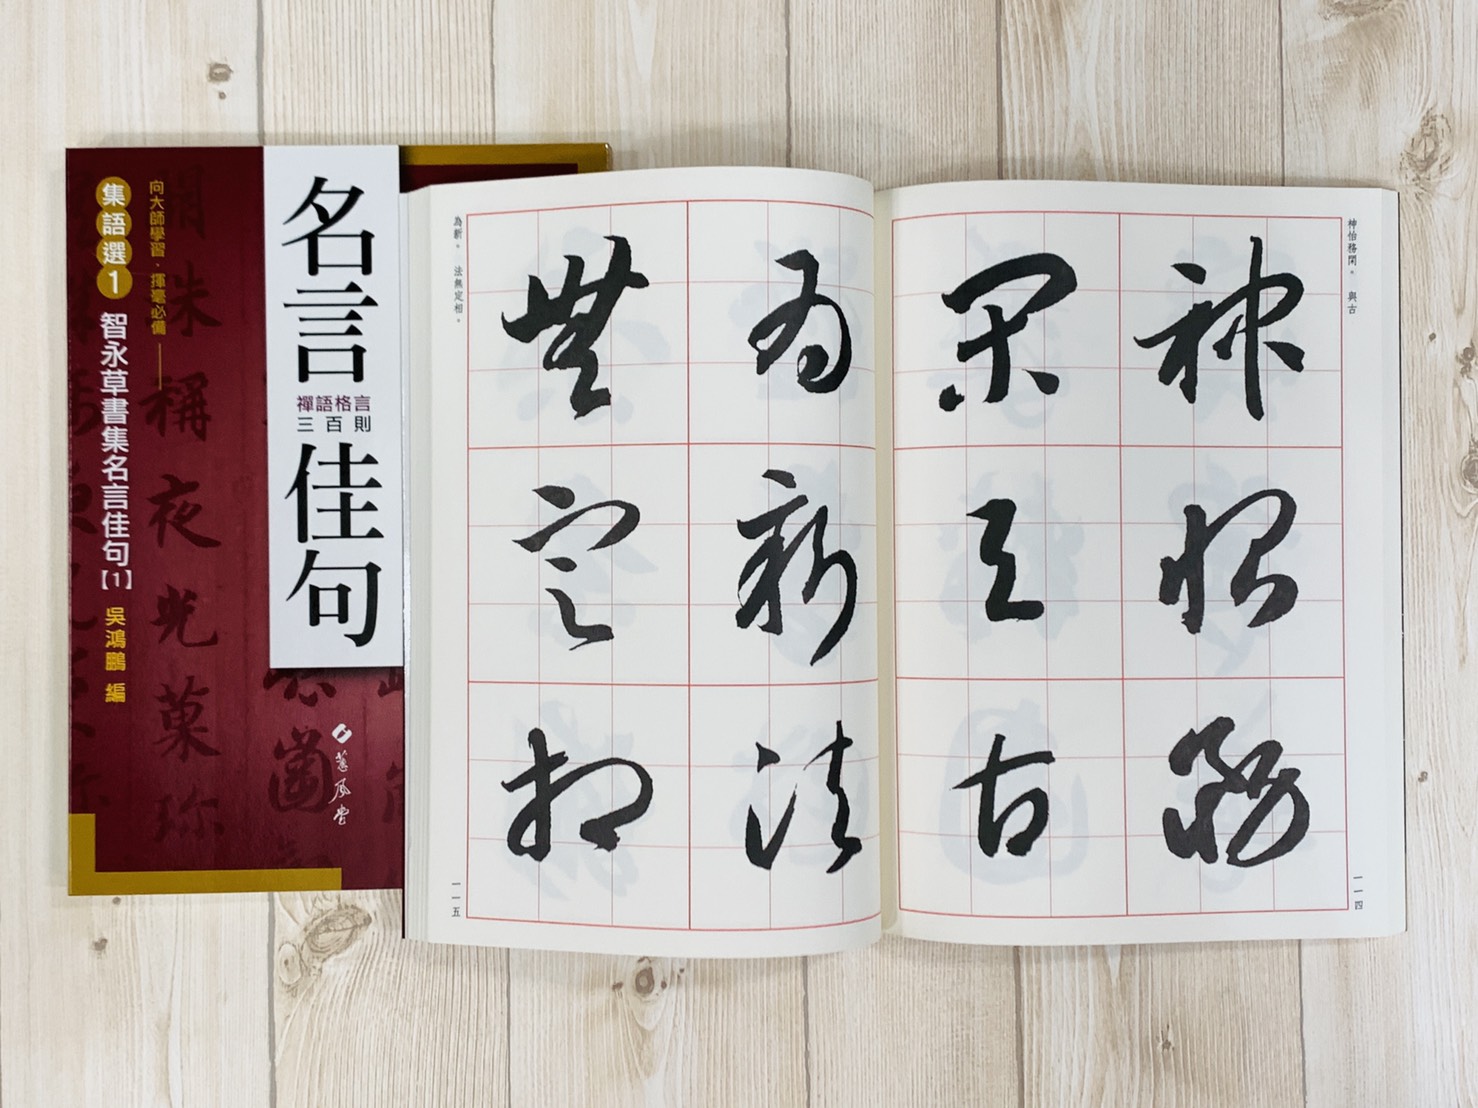 名言佳句
禪語格言
三百則
向大師學習．揮毫必備
集語選1
智永草書集名言佳句【1】
吳鴻鵬 編
蕙風堂
神怡務閑。 與古
神怡務
閑與古
一一四
為新。 法無定相。
為新法
無定相
一一五
珠稱夜光菓珍